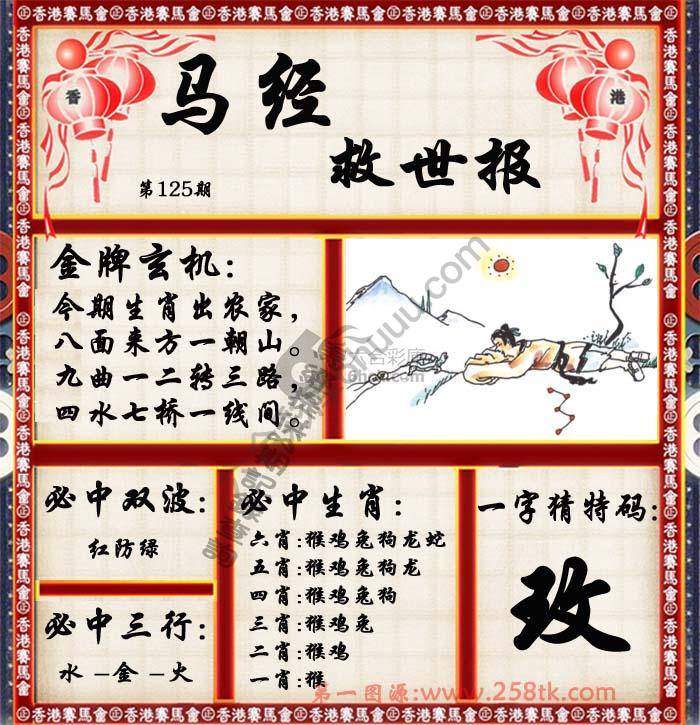 香港賽馬會
香 港
马经
救世报
第125期
金牌玄机：
今期生肖出农家，
八面来方一朝山。
九曲一二转三路，
四水七桥一线间。
必中双波：
红防绿
必中三行：
水-金-火
必中生肖：
六肖:猴鸡兔狗龙蛇
五肖:猴鸡兔狗龙
四肖:猴鸡兔狗
三肖:猴鸡兔
二肖:猴鸡
一肖:猴
一字猜特码：
玫
第一图源:www.258tk.com